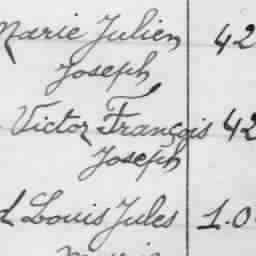 Marie Julien 42
Joseph
Victor François 42
Joseph
Louis Jules 1.0